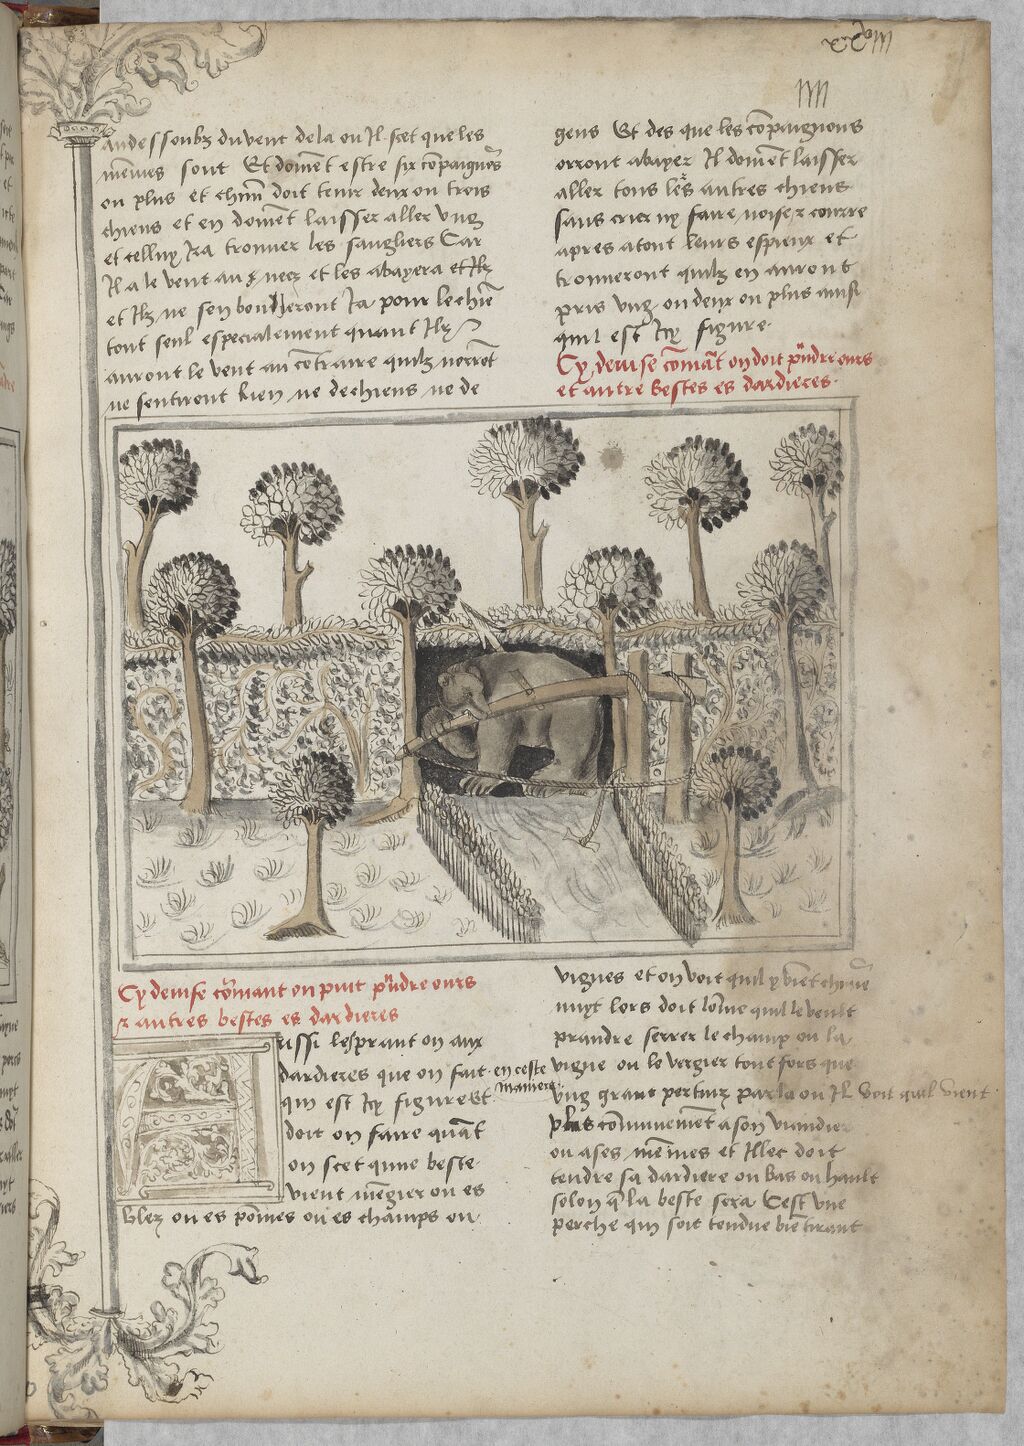 xxviii
iiii
audessoubz du vent de la ou Il scet que les
mēmes sont Et doiuēt estre six cōpaignōs
ou plus et chūn doit tenir deux ou trois
chiens et en doiuēt laisser aller vng
et celluy Ira trouuer les sangliers Car
Il a le vent au nez et les abayera et Ilz
et Ilz ne sen bougeront Ia pour le chiē
tout seul especialement quant Ilz
auront le vent au cōtraire quilz norrōt
ne sentiront Rien ne de chiens ne de
gens Et des que les cōpaignons
orront abayer Il doiuēt laisser
aller tous les autres chiens
sans crier ny faire noise z courre
apres a tout leurs espieux et
trouueront quilz en auront
pris vng ou deux ou plus ainsi
quil est Icy figure
Cy deuise cōmāt on doit pūdre ours
et autre bestes es dardieres
Cy deuise cōmant on puit pūdre ours
z autres bestes es dardieres
Aussi les prant on aux
dardieres que on fait en ceste maniere
qui est Icy figure Et
doit on faire quāt
on scet q̄une beste
vient mēgier ou es
blez ou es pōmes ou es champs ou
vignes et on voit quil y viēt chūne
nuyt lors doit lōme qui le veult
prandre serrer le champ ou la
vigne ou le vergier tout fors que
vng grant pertuiz par la ou Il voit quil vient
plus cōmunement a son viandier
ou a ses mēmes et Illec doit
tendre sa dardiere ou bas ou hault
selon q̄ la beste sera Cest vne
perche qui soit tendue biē tirant